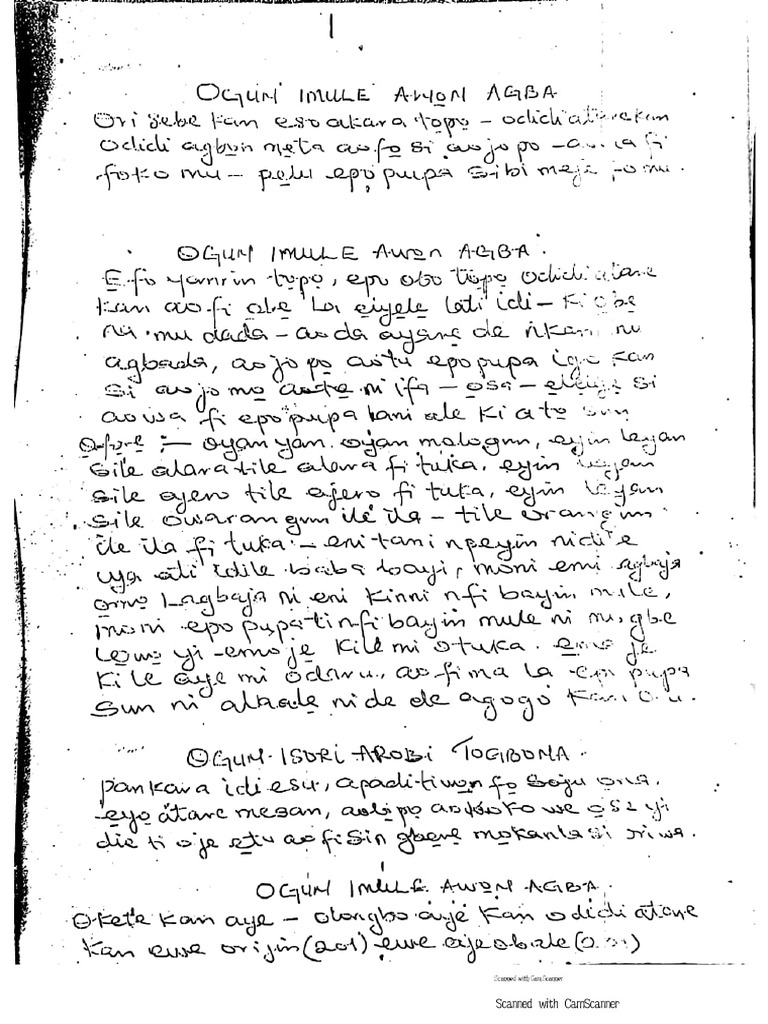 1
OGUN IMULE AWON AGBA
Ori sebe kan eso akara topo - odidi atare kan
odidi agbon meta ao fo si ao jo po - fi
foko mu - pelu epo pupa sibi meje fo mu.
OGUN IMULE AWON AGBA.
Efo yanrin topo, epo obo topo odidi atare
kan ao fi obe la eiyele lati idi - ki obe
na mu dada - ao da ayane de nkan nu
agbada, ao jo po ao tu epo pupa igo kan
si ao jo mo ao te ni ifa - osa - eleiye si
ao wa fi epo pupa lani ale ki a to sun
Ofore :- oyan yan. oyan malogun, eyin leyan
sile alara tile alara fi tuka, eyin leyan
sile ajero tile ajero fi tuka, eyin leyan
sile owarangun ile ila - tile orangun
ile ila fi tuka - eni tani npeyin nidi e
iya ati idile baba bayi, moni emi agbaja
omo Lagbaja ni eni kinni nfi bayin mule,
moni epo pupa tinfi bayin mule ni nugbe
lowo yi - emo je kile mi otuka. emo je
ki le aye mi odaru, ao fi ma la epo pupa
sun ni alaale ni de de agogo kan
OGUN ISORI AROBI TOGBONA.
pankara idi esu, apadi tiwon fo soju ona,
eyo atare mesan, ao lo po ao koko we ose yi
die ti oje etu ao fi sin gbere mokanla si ori wa.
OGUN IMULE AWON AGBA
Okete kan aye - ologbo aye kan odidi atare
kan ewe origin (201) ewe aje obale
Scanned with CamScanner
Scanned with CamScanner